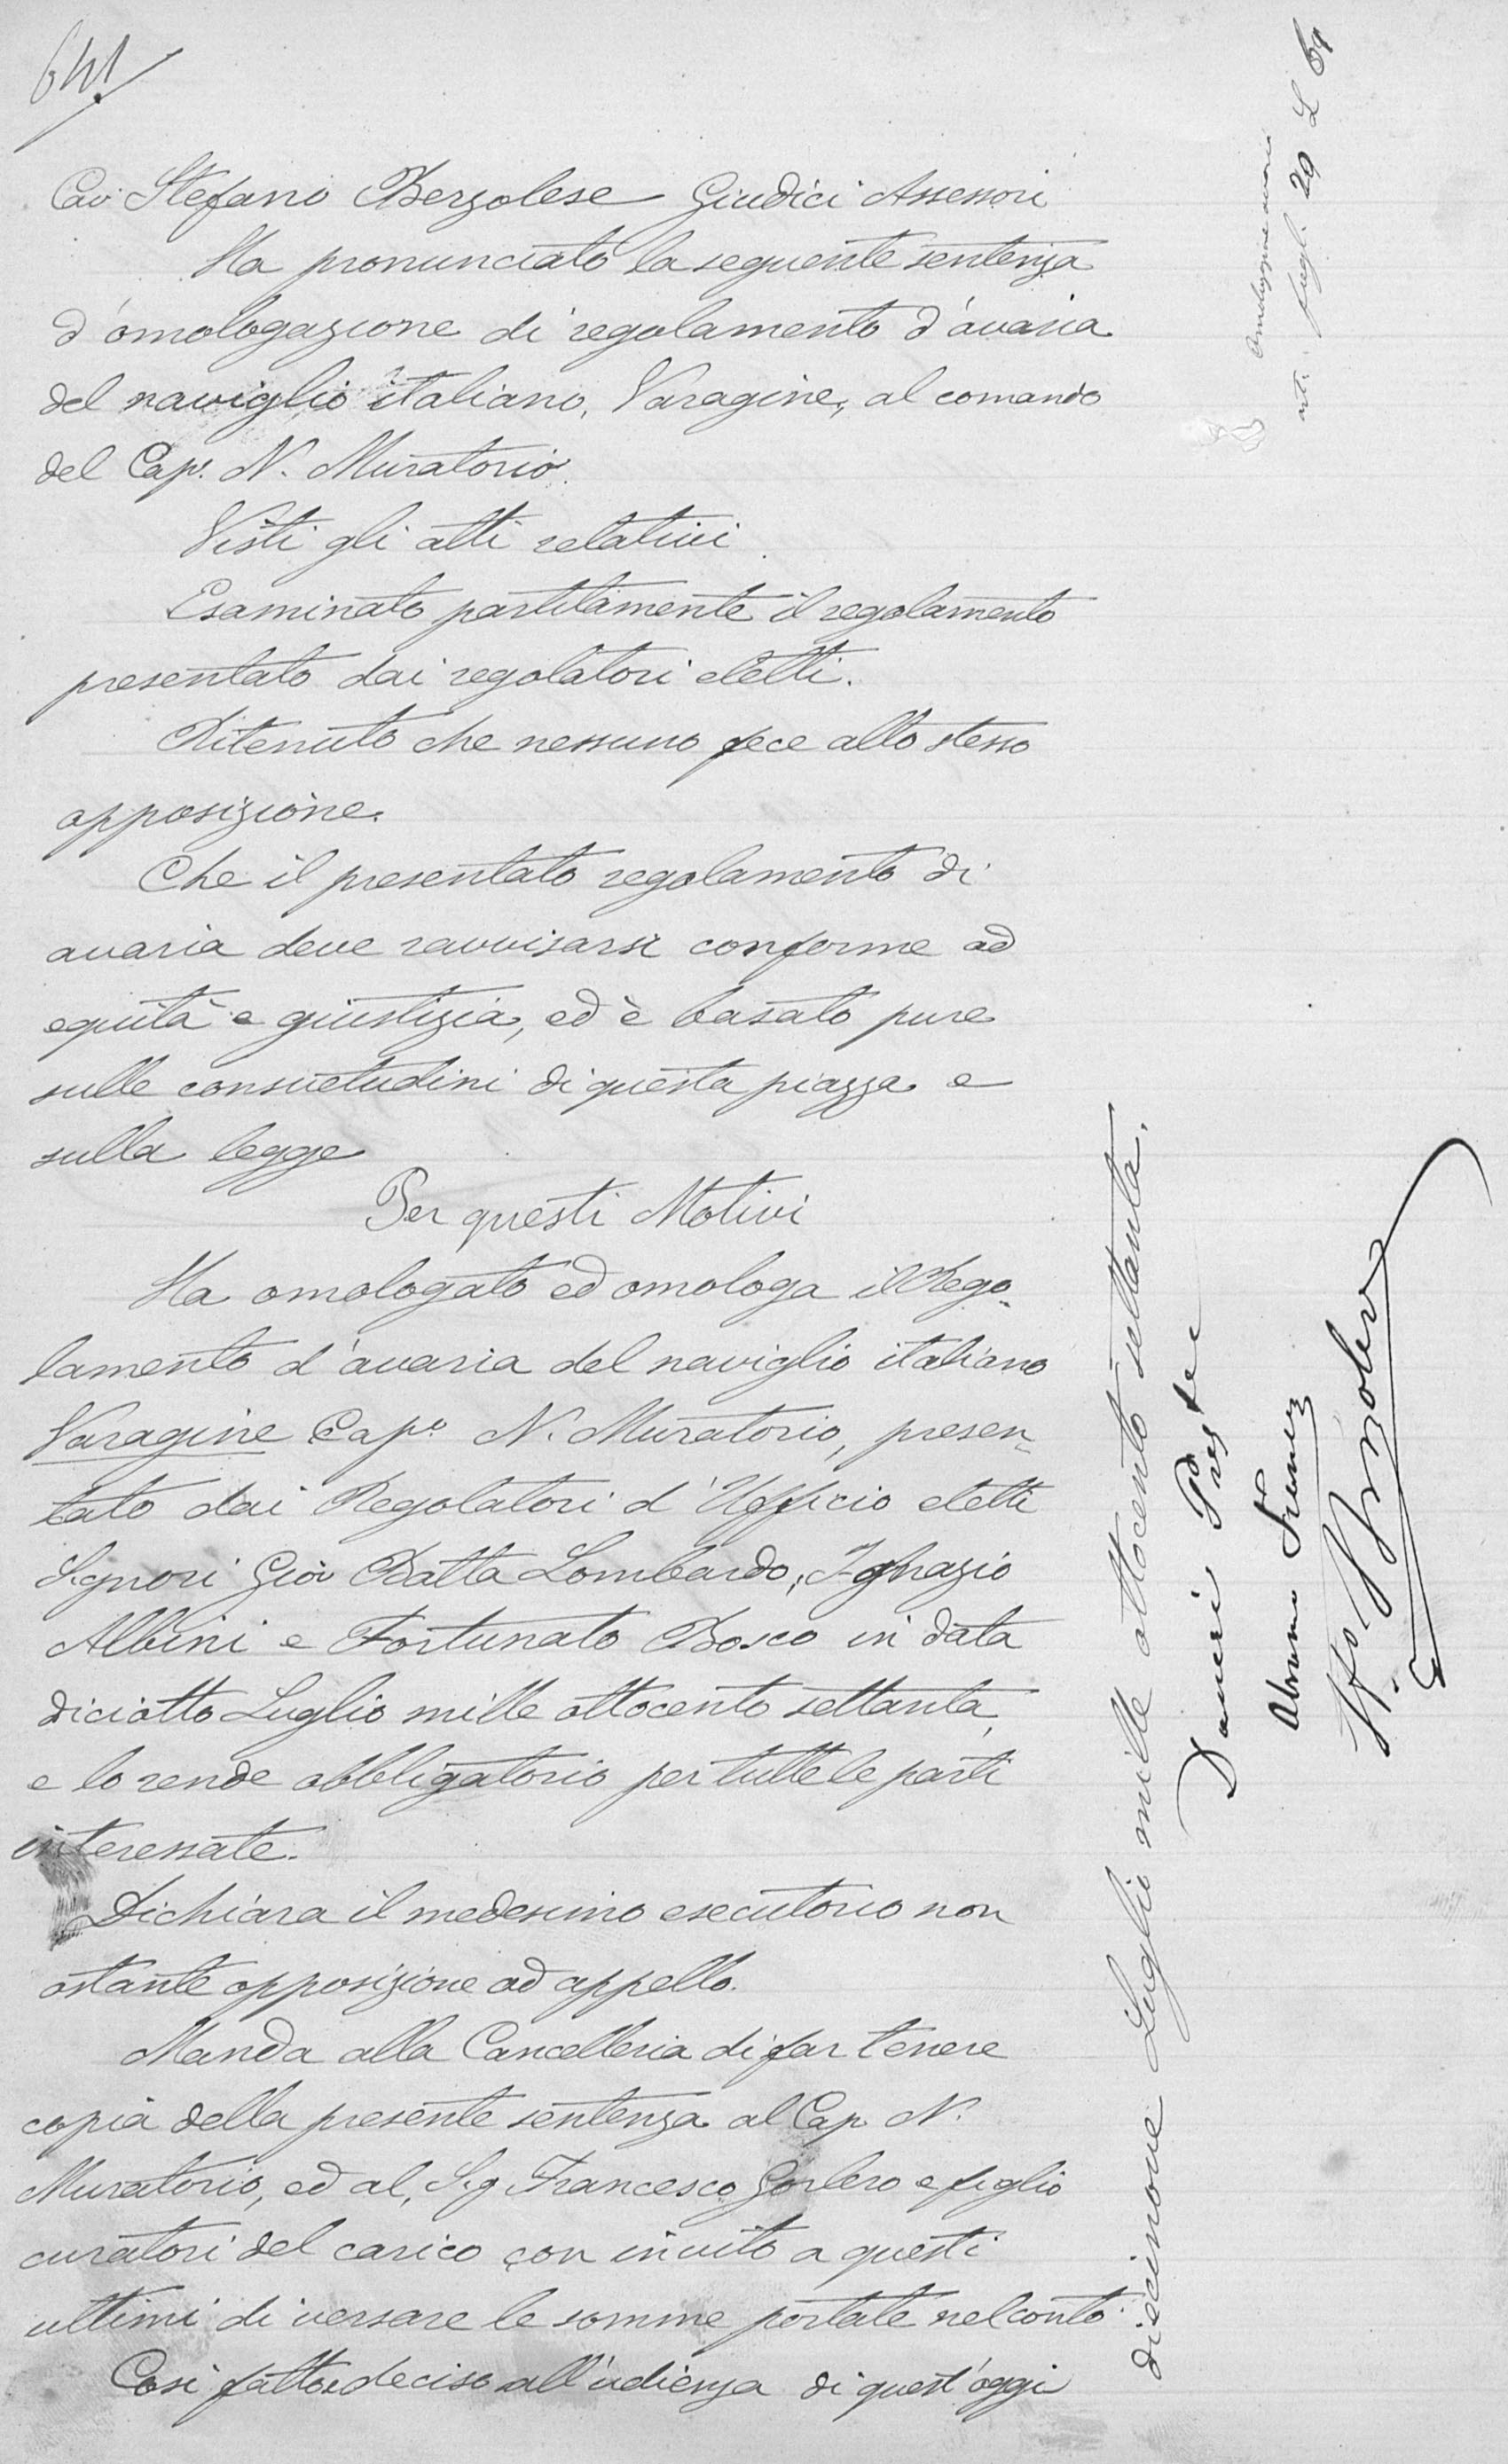 641
Cav. Stefano Berzolese Giudici Assessori
Ha pronunciato la seguente sentenza
d'omologazione di regolamento d'avaria
del naviglio italiano, Varagine, al comando
del Cap.º N. Muratorio.
Visti gli atti relativi
Esaminato partitamente il regolamento
presentato dai regolatori eletti.
Ritenuto che nessuno fece allo stesso
opposizione.
Che il presentato regolamento di
avaria deve ravvisarsi conforme ad
equità e giustizia, ed è basato pure
sulle consuetudini di questa piazza e
sulla legge
Per questi Motivi
Ha omologato ed omologa il Rego-
lamento d'avaria del naviglio italiano
Varagine Cap.º N. Muratorio, presen-
tato dai Regolatori d'Ufficio eletti
Signori Gio Batta Lombardo, Ignazio
Albini e Fortunato Bosco in data
diciotto Luglio mille ottocento settanta,
e lo rende obbligatorio per tutte le parti
interessate.
Dichiara il medesimo esecutorio non
ostante opposizione od appello.
Manda alla Cancelleria di far tenere
copia della presente sentenza al Cap. N.
Muratorio, ed al, Sig. Francesco Gorlero e figlio
curatori del carico con invito a questi
ultimi di versare le somme portate nel conto.
Così fatto e deciso all'udienza di quest'oggi
diecinove Luglio mille ottocento settanta.
Daneri Pres.te
Abramo
29 L